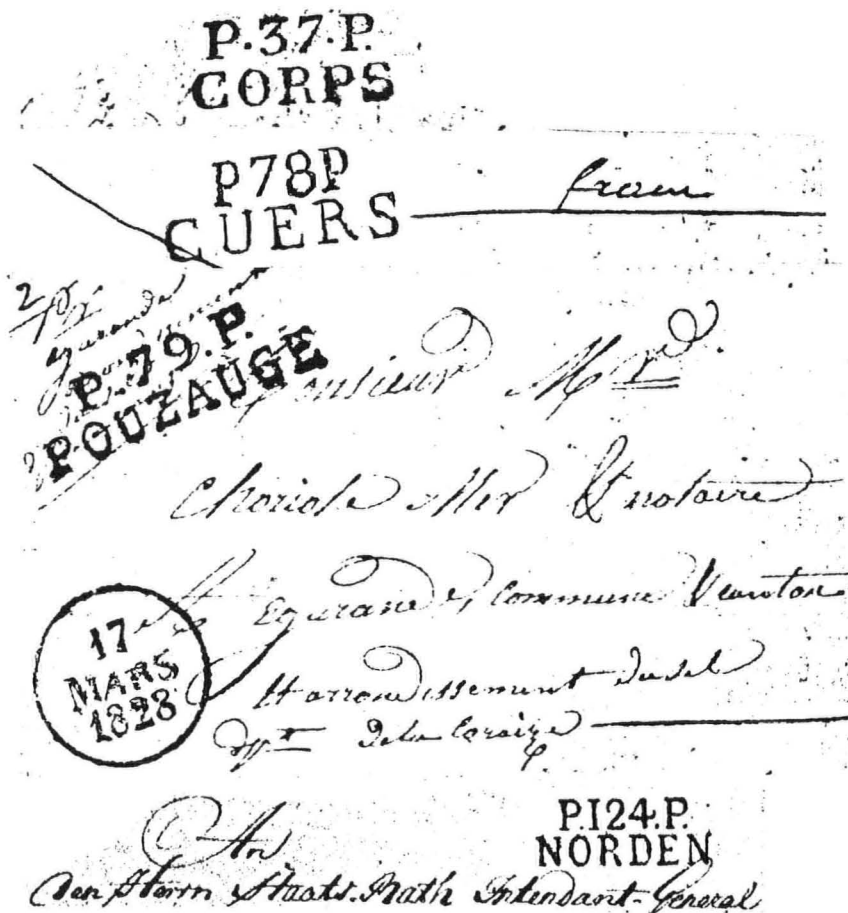 P.37.P.
CORPS
P78P
CUERS
P.79.P.
POUZAUGE
Monsieur Mrd
& notaire
Egurande, Commune & Canton
17
MARS
1828
& arrondissement dusel
dpt de la Coraize
P.124.P.
NORDEN
An
den Herrn Staats Rath Intendant-General